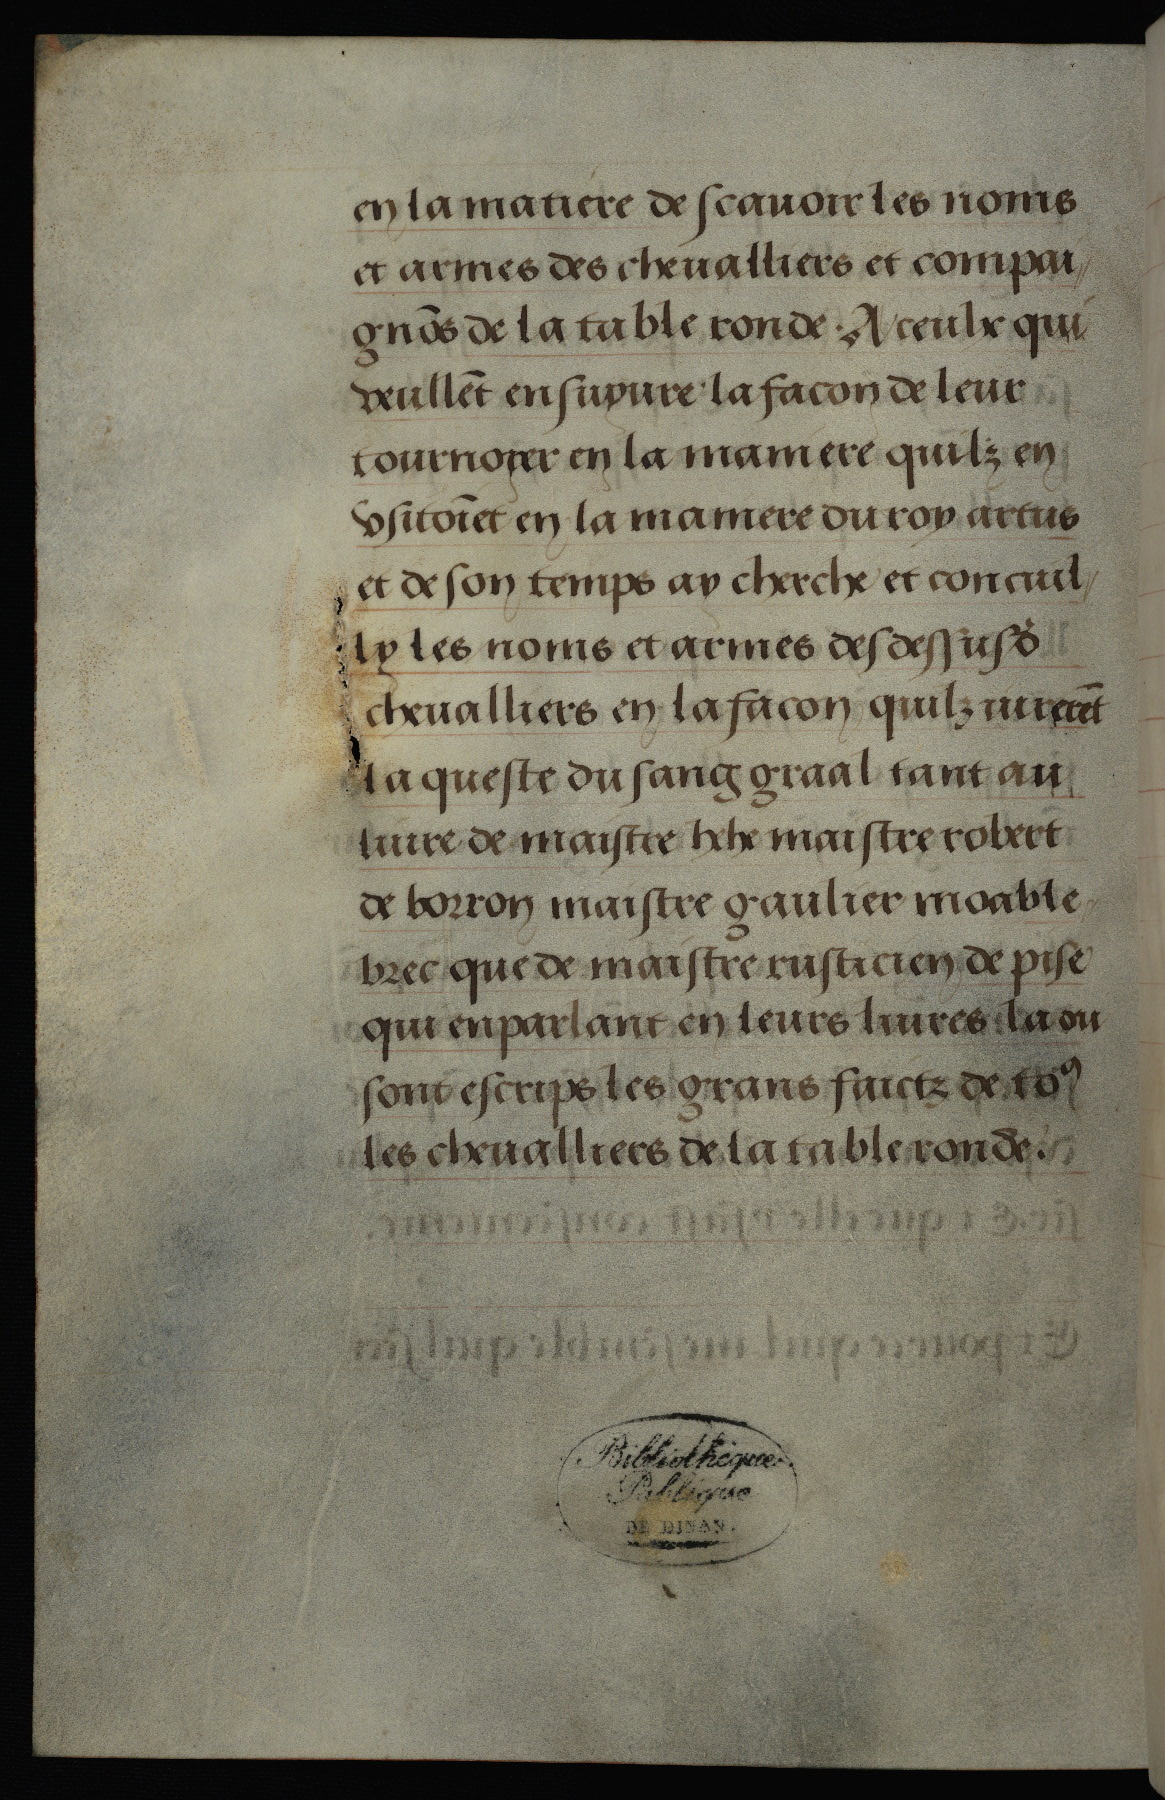 en la matiere de scauoir les noms
et armes des cheualliers et compai//
gnōs de la table ronde. A ceulx qui
veullēt ensuyure la facon de leur
tournoyer en la maniere quilz en
vsitoīet en la maniere du roy artus
et de son temps ay cherche et concuil//
ly les noms et armes des dessusd̄
cheualliers en la facon quilz iurerēt
la queste du sang graal tant au
liure de maistre helie maistre robert
de borron maistre gaulier moable//
brec que de maistre rusticien de pise
qui en parlant en leurs liures la ou
sont escrips les grans faictz de toꝰ
les cheualliers de la table ronde.
Bibliothèque
Publique
DE DINAN.